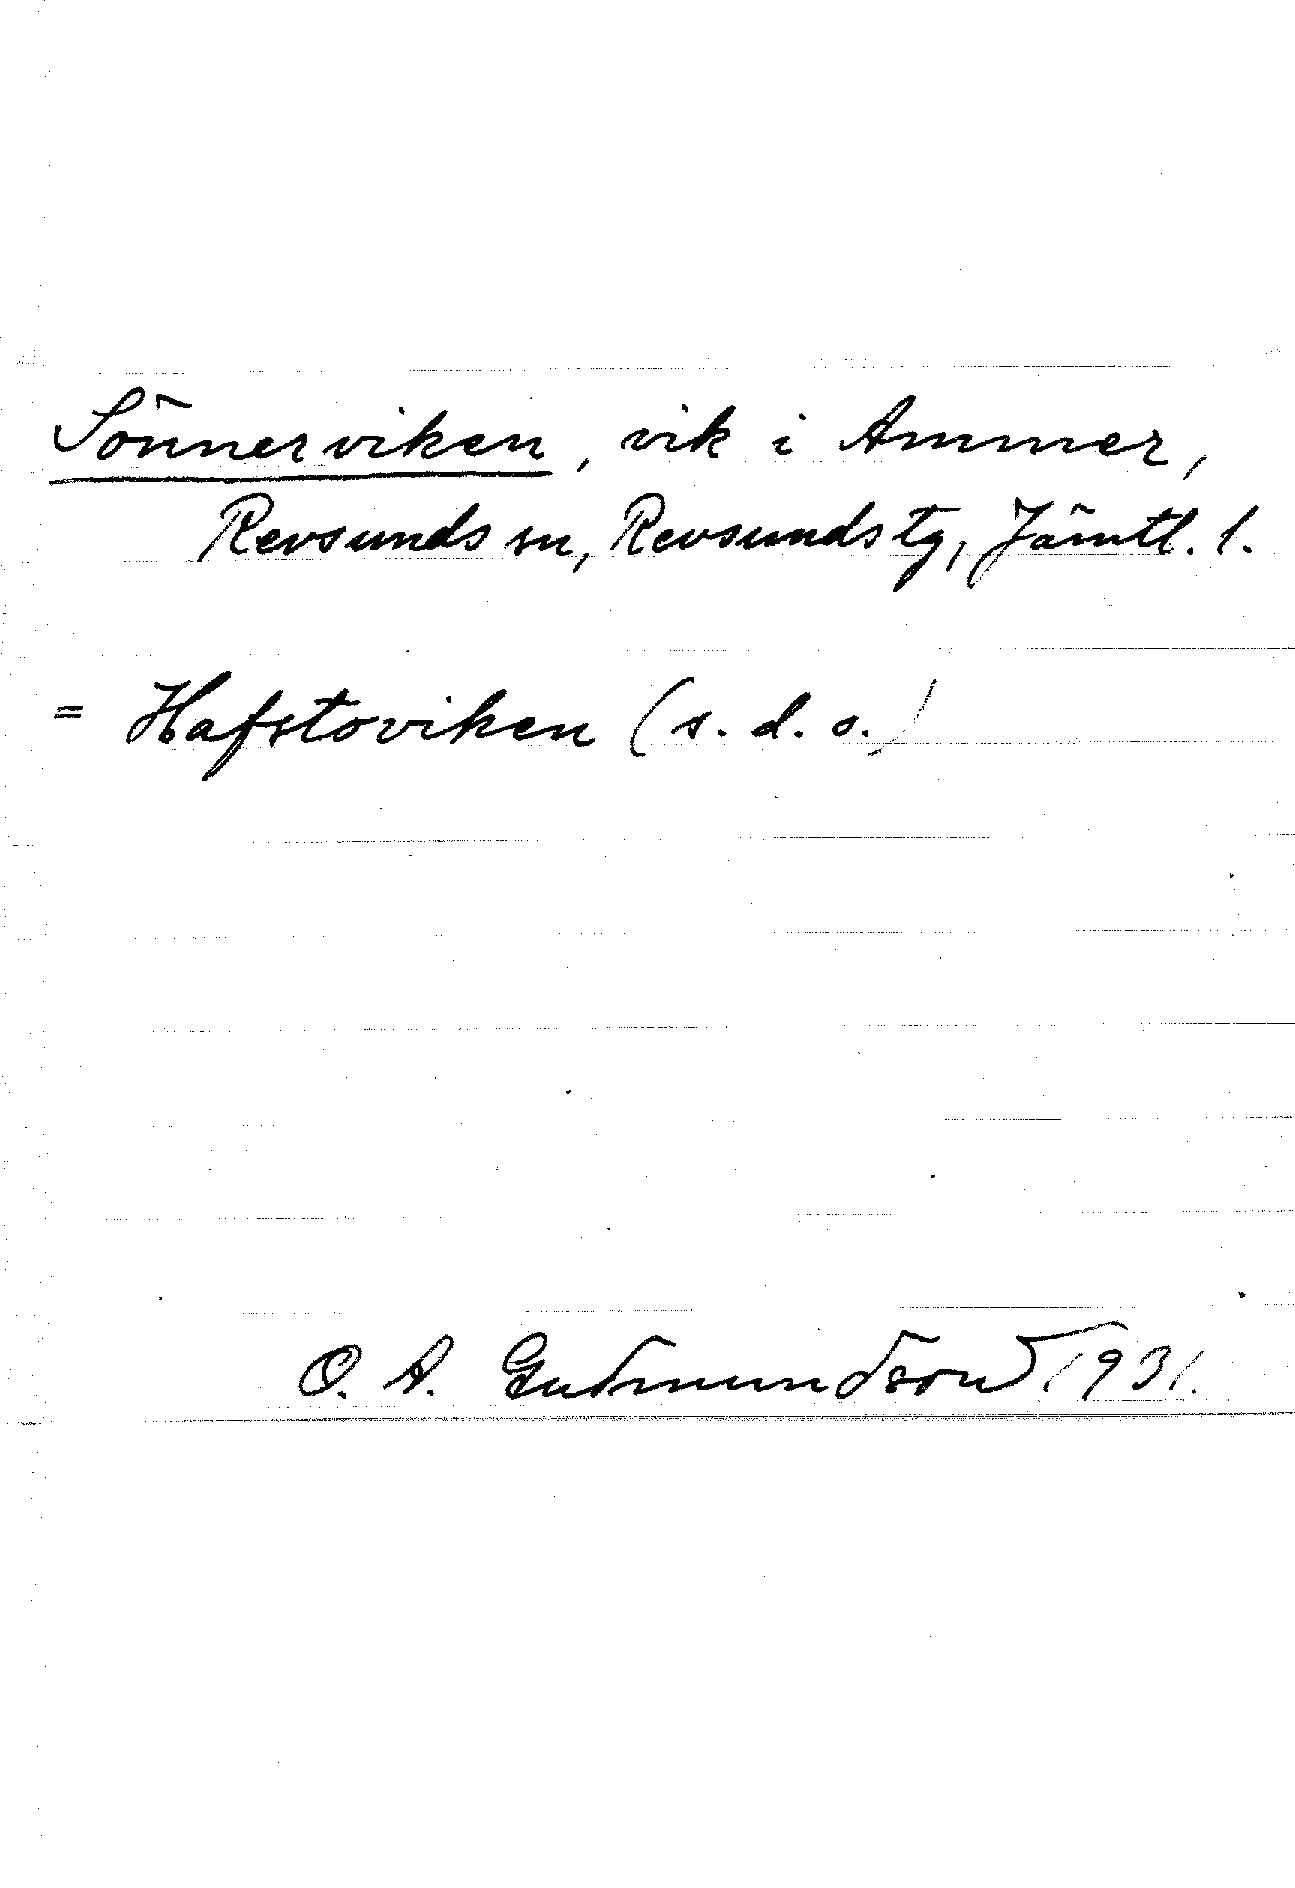 Sönnerviken, vik i Ammer,
Revsunds sn, Revsunds tg, Jämtl. l.
= Hafstoviken (s. d. o.)
O. A. Gudmundson 1931.